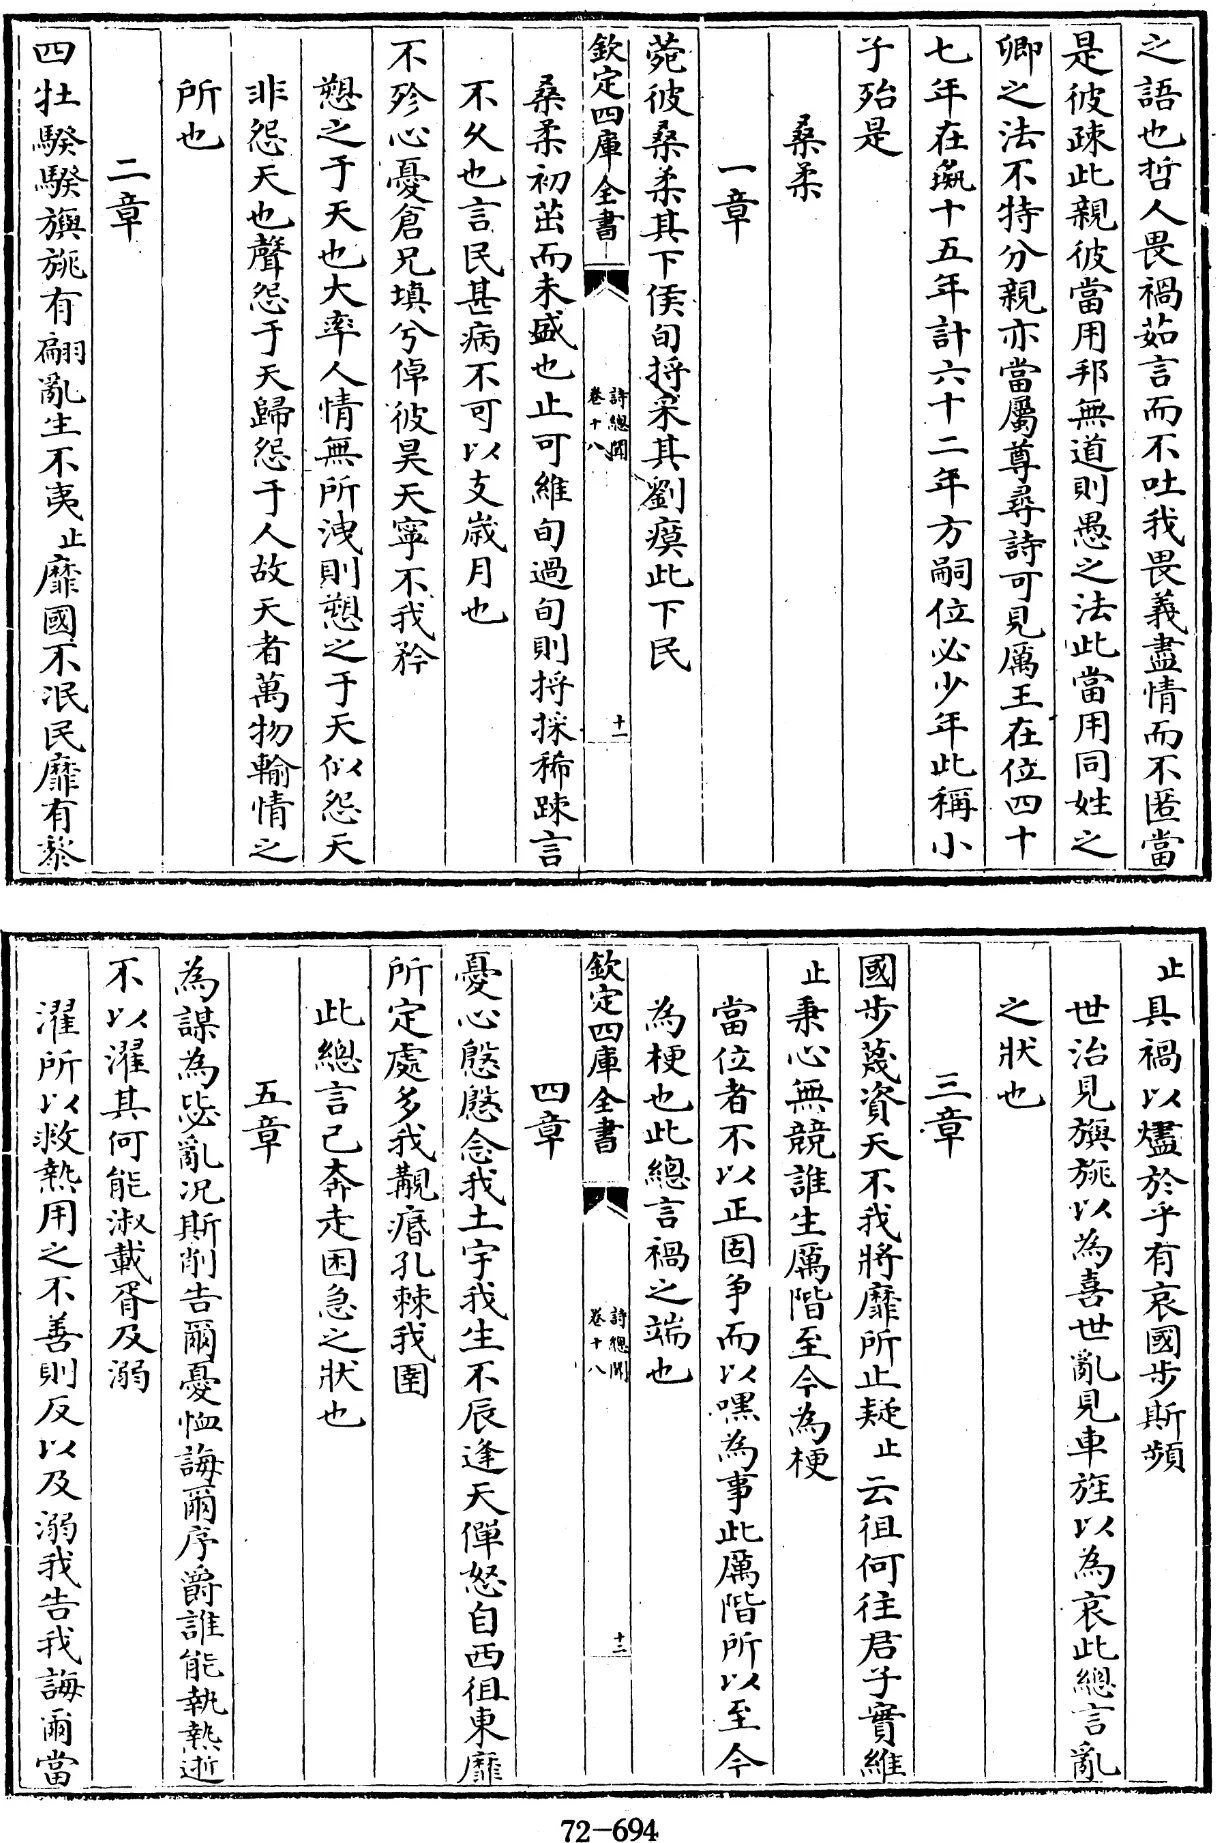 之語也哲人畏禍茹言而不吐我畏義盡情而不匿當
是彼疎此親彼當用邦無道則愚之法此當用同姓之
卿之法不特分親亦當屬尊尋詩可見厲王在位四十
七年在彘十五年計六十二年方嗣位必少年此稱小
子殆是
桑柔
一章
菀彼桑柔其下侯旬捋采其劉瘼此下民
欽定四庫全書
詩總聞
卷十八
十一
桑柔初茁而未盛也止可維旬過旬則捋採稀踈言
不久也言民甚病不可以支歲月也
不殄心憂倉兄填兮倬彼昊天寧不我矜
愬之于天也大率人情無所洩則愬之于天似怨天
非怨天也聲怨于天歸怨于人故天者萬物輸情之
所也
二章
四牡騤騤旟旐有翩亂生不夷止靡國不泯民靡有黎
止具禍以燼於乎有哀國步斯頻
世治見旟旐以為喜世亂見車旌以為哀此總言亂
之狀也
三章
國步蔑資天不我將靡所止疑止云徂何往君子實維
止秉心無競誰生厲階至今為梗
當位者不以正固争而以嘿為事此厲階所以至今
為梗也此總言禍之端也
欽定四庫全書
詩總聞
卷十八
十二
四章
憂心慇慇念我土宇我生不辰逢天僤怒自西徂東靡
所定處多我覯痻孔棘我圉
此總言己奔走困急之狀也
五章
為謀為毖亂況斯削告爾憂恤誨爾序爵誰能執熱逝
不以濯其何能淑載胥及溺
濯所以救熱用之不善則反以及溺我告我誨爾當
72-694